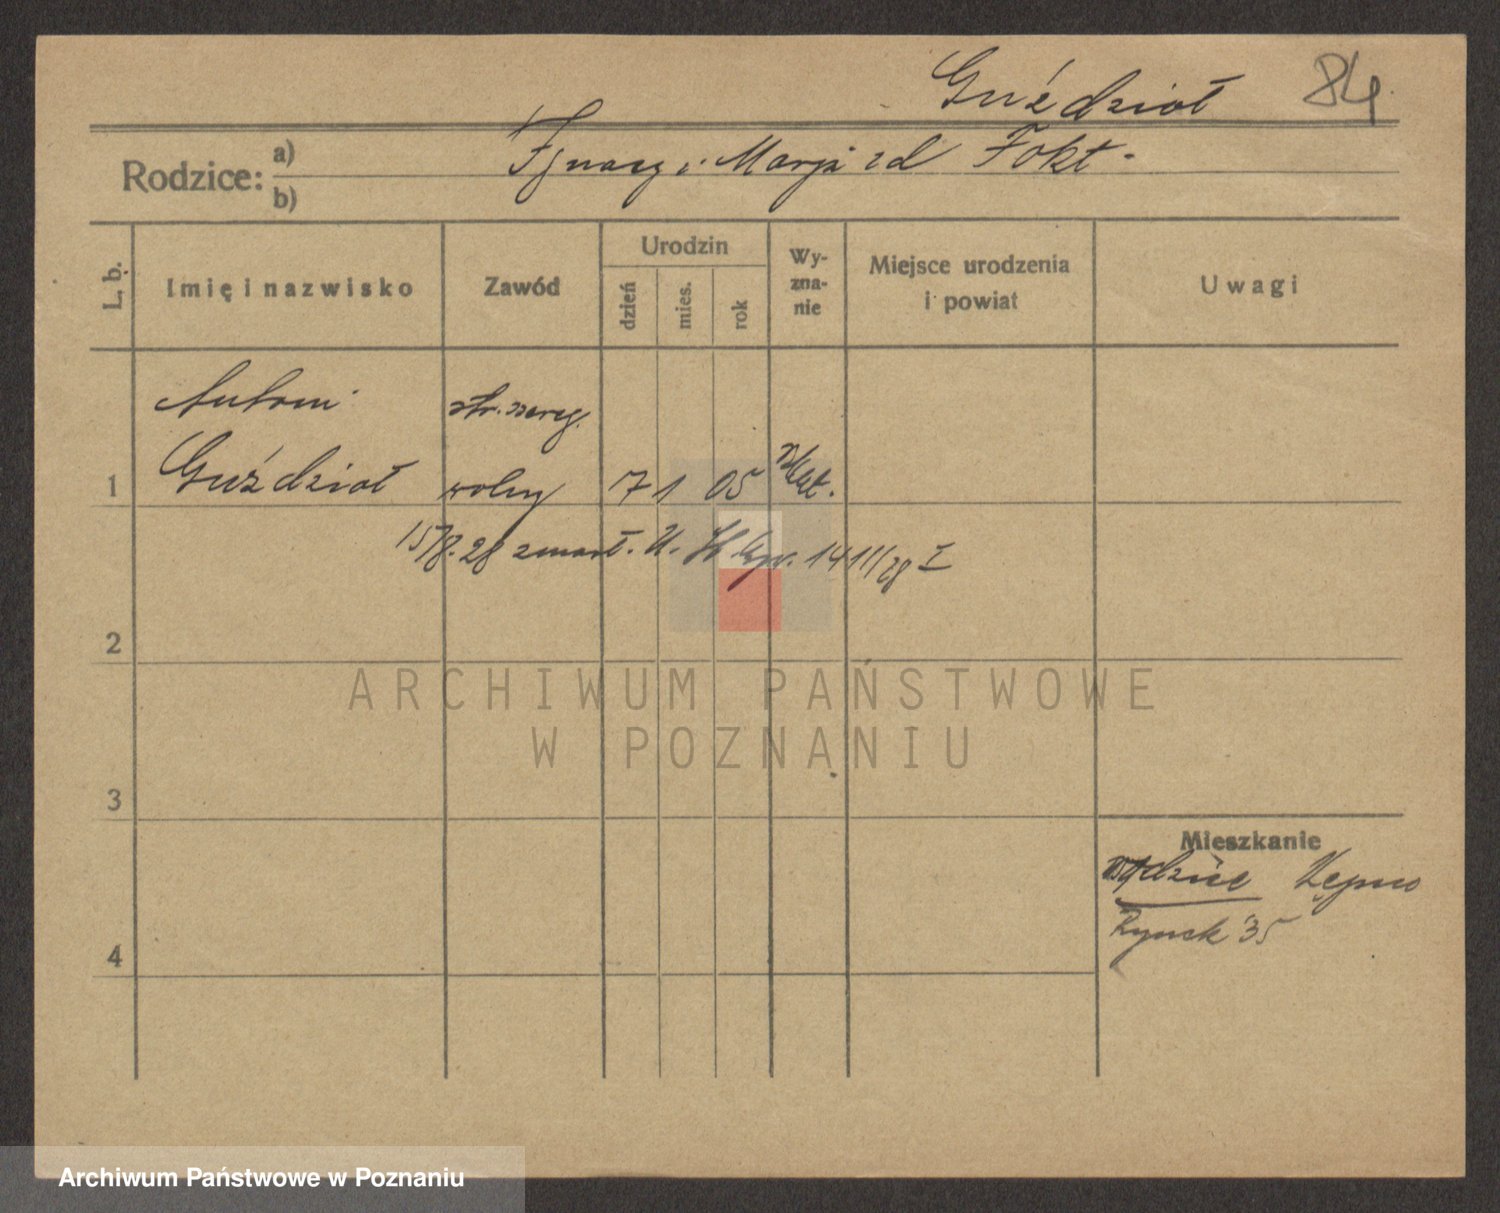 Guździoł 84
Rodzice: a) b)
Ignacy i Marja zd Fokt.
L. b.
Imię i nazwisko
Zawód
Urodzin
dzień
mies.
rok
Wy-
zna-
nie
Miejsce urodzenia
i powiat
Uwagi
Antoni str. szereg.
1 Guździoł wolny 7 1 05 Kat.
15/8. 28 zmarł. U. 14 III/28 I
2
ARCHIWUM PAŃSTWOWE
W POZNANIU
3
Mieszkanie
rodzice Kępno
4
Rynek 35
Archiwum Państwowe w Poznaniu